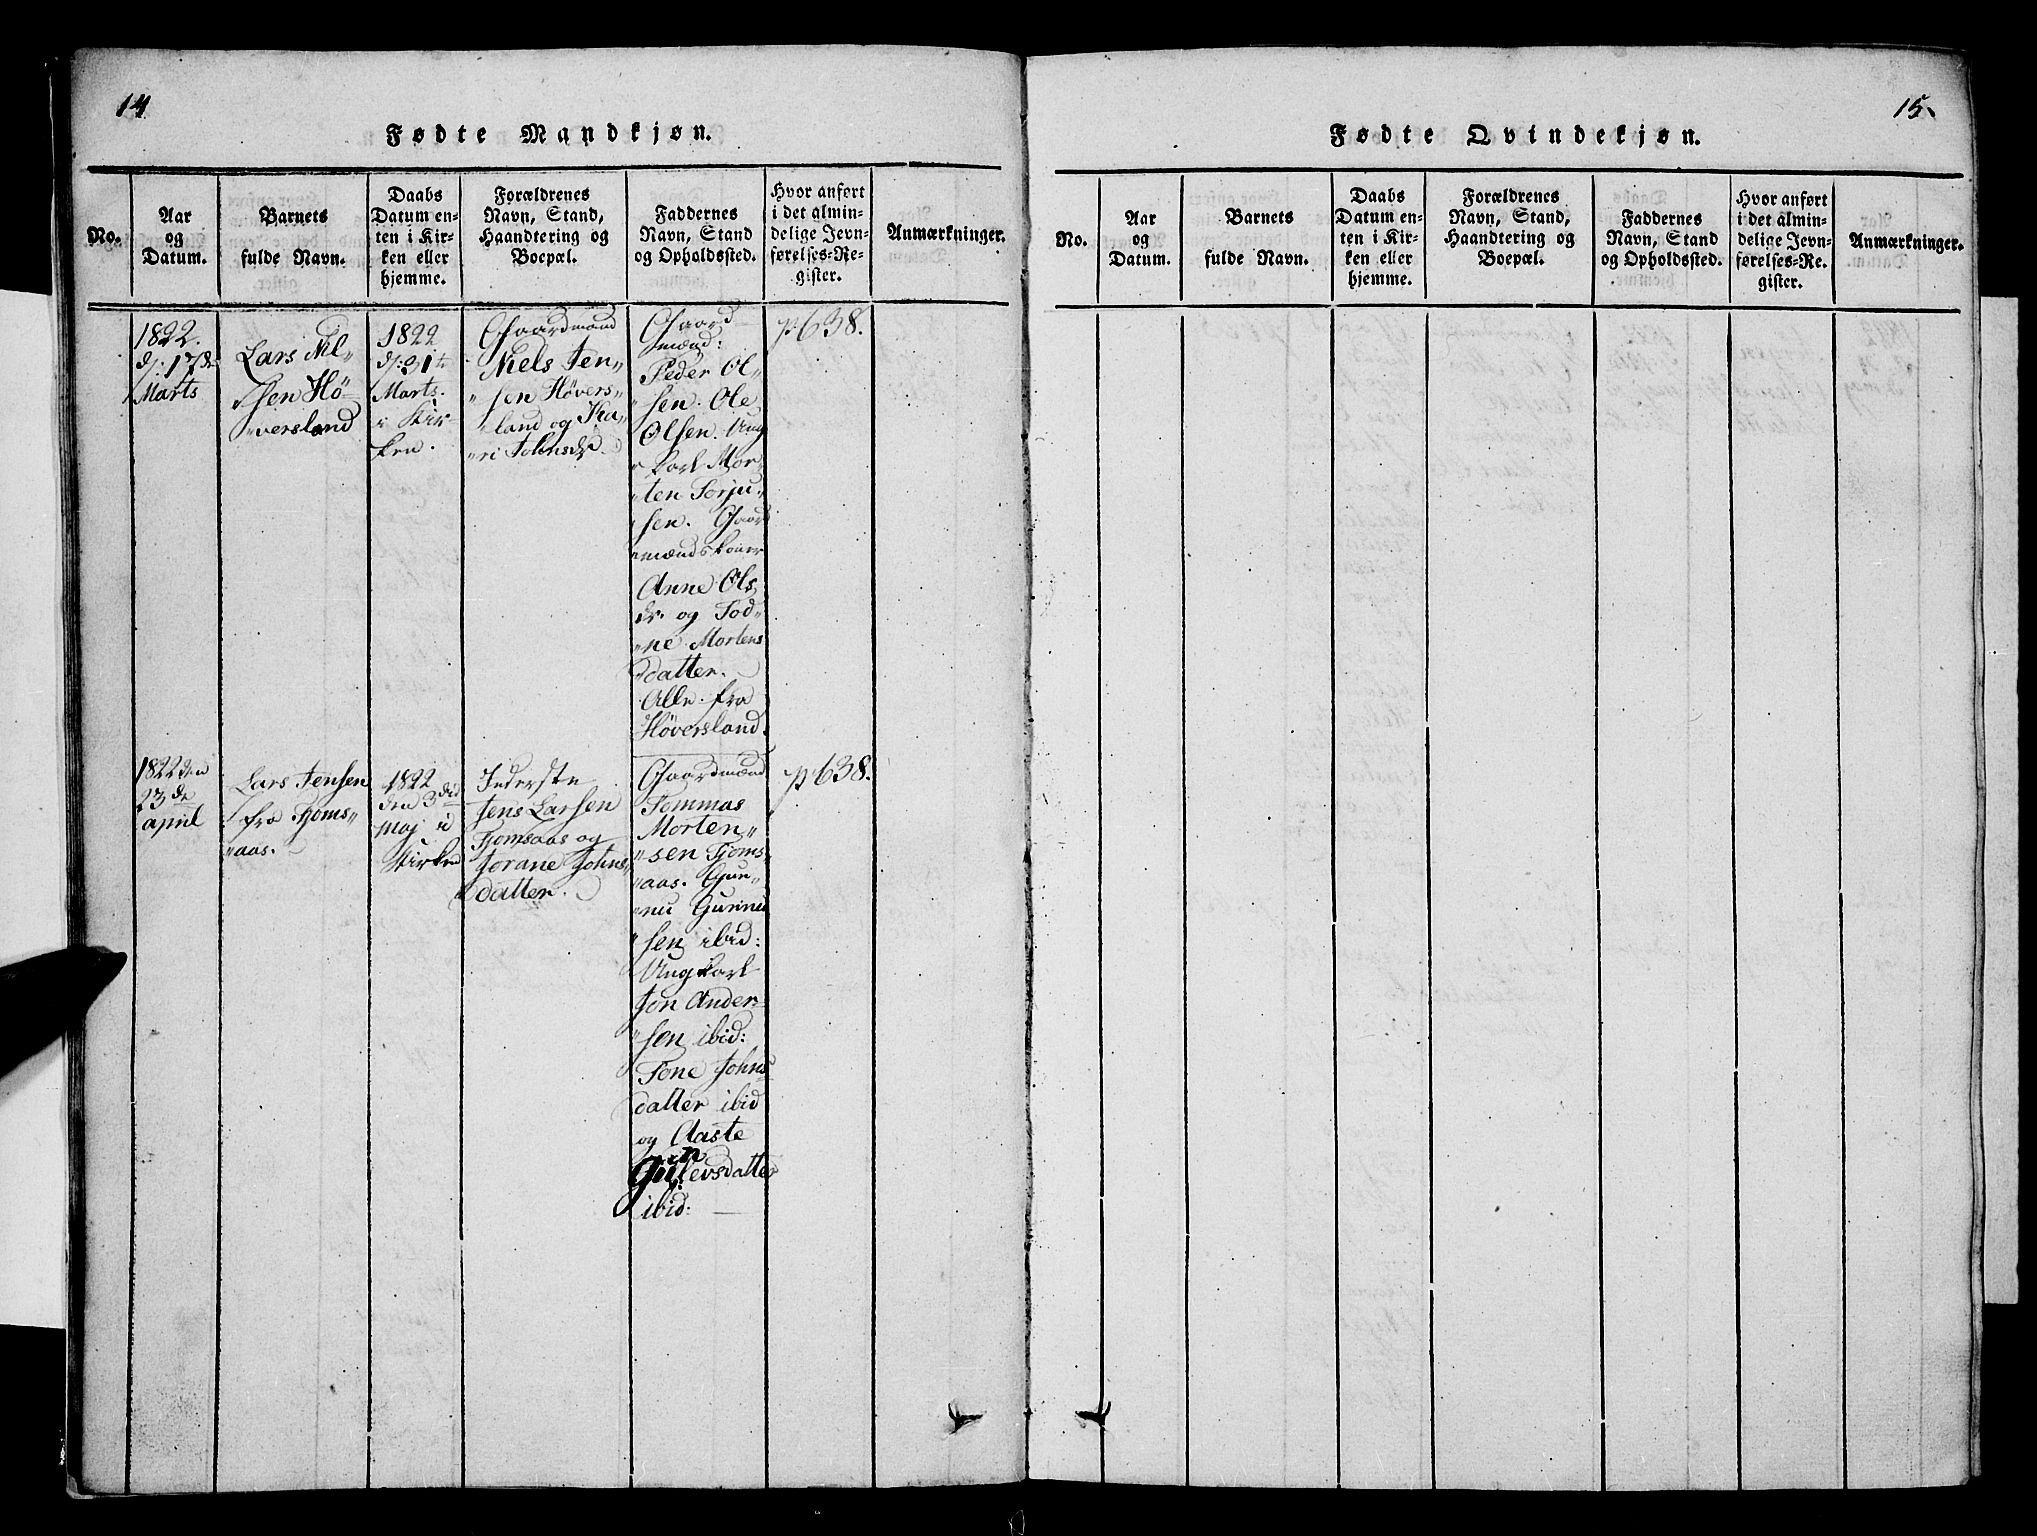 14
Fødte Mandkjøn.
No.
Aar
og
Datum.
Barnets
fulde Navn.
Daabs
Datum en-
ten i Kir-
ken eller
hjemme.
Forældrenes
Navn, Stand,
Haandtering og
Boepæl.
Faddernes
Navn, Stand
og Opholdssted.
Hvor anført
i det almin-
delige Jevn-
førelses-Re-
gister.
Anmærkninger.
1822.
d: 17de
Marts
Lars Nil-
sen Hö-
versland
1822
d: 31te
Marts.
i Kir-
ken.
Gaardmand
Niels Jen-
sen Høvers-
land og Ka-
ri Johnsdr
Gaard-
mænd:
Peder Ol-
sen. Ole
Olsen. Ung
karl Mor-
ten Torju-
sen. Gaard
mændskoner
Anne Ols
dr. og Tod-
ne Mortens
datter.
Alle fra
Høversland.
p 638.
1822 den
23de
april
Lars Jensen
fra Tjoms-
aas.
1822
den 3die
Maj i
Kirken
Inderste
Jens Larsen
Tjomsaas og
Jorane Johns-
datter.
Gaardmænd
Tommas
Morten-
sen Tjoms-
aas. Gun-
nu Gunnu
sen ibid:
Ungkarl
Jon Ander-
sen ibid:
Tone Johns-
datter ibid
og Aaste
Gunlevsdatter
ibid:
p 638.
15.
Fødte Qvindekjøn.
No.
Aar
og
Datum.
Barnets
fulde Navn.
Daabs
Datum en-
ten i Kir-
ken eller
hjemme.
Forældrenes
Navn, Stand,
Haandtering og
Boepæl.
Faddernes
Navn, Stand
og Opholdssted.
Hvor anført
i det almin-
delige Jevn-
førelses-Re-
gister.
Anmærkninger.